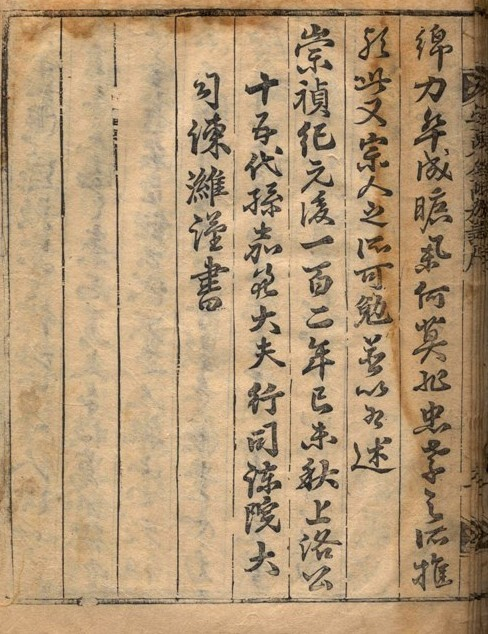 綿力卒成曠何莫非忠孝之所推
此又宗人之所可勉並以述
崇禎紀元後一百二年己未秋上洛公
十五代孫嘉善大夫行司諫院大
司諫濰謹書
族譜序